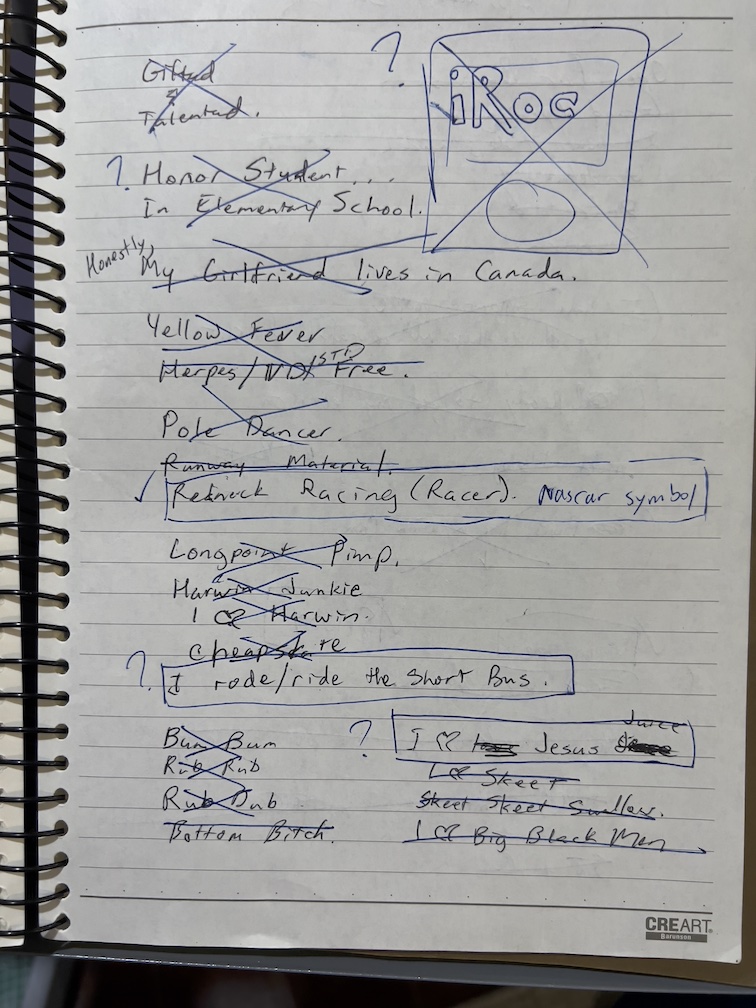 Gifted
&
Talented.
?
iRoc
? Honor Student...
In Elementary School.
Honestly,
My Girlfriend lives in Canada.
Yellow Fever
STD
Herpes/VD/ Free.
Pole Dancer.
Runway Material.
✓ Redneck Racing (Racer). Nascar symbol
Longpoint Pimp.
Harwin Junkie
I ♡ Harwin.
Cheapskate
? I rode/ride the short Bus.
Bum Bum
Rub Rub
Rub Dub
Bottom Bitch.
Juice
? I ♡ Jesus
I ♡ Skeet
Skeet Skeet Swallow.
I ♡ Big Black Men
CREART
Baronson